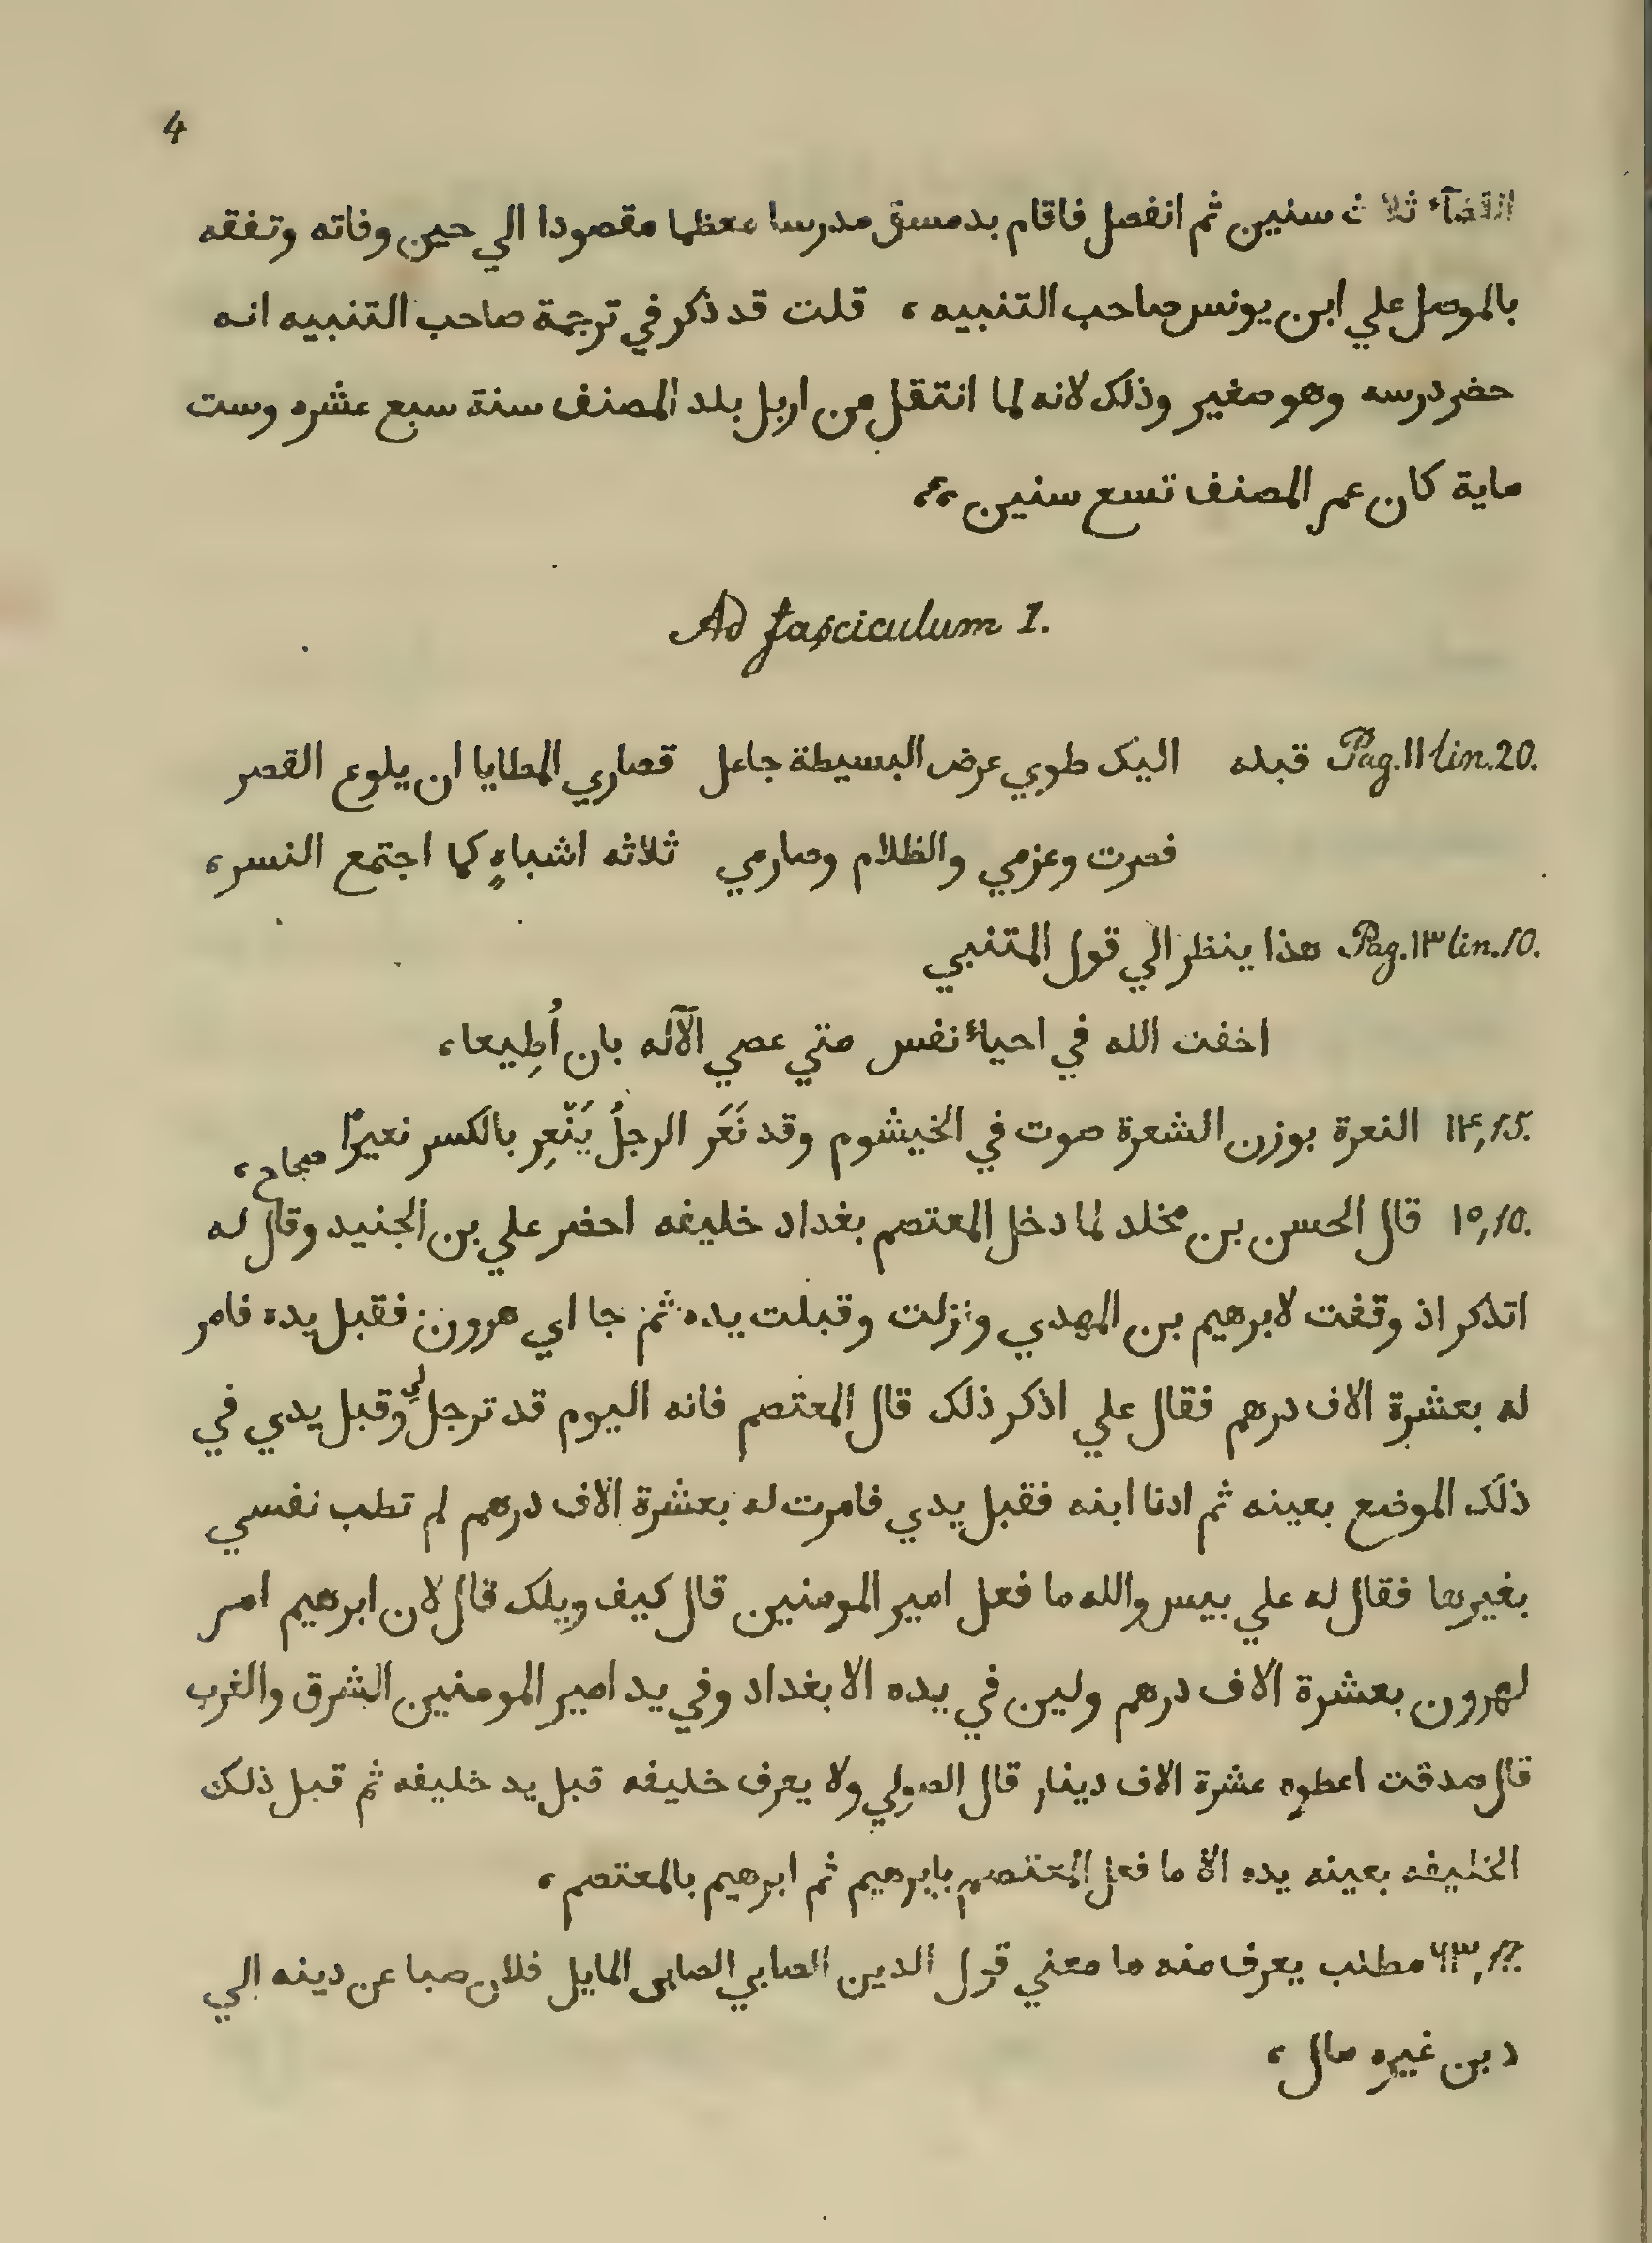 4
انقضآء ثلاث سنين ثم انفصل فاقام بدمسق مدرسا معظما مقصودا الي حين وفاته وتفقه
بالموصل علي ابن يونس صاحب التنبيه ، قلت قد ذكر في ترجمة صاحب التنبيه انه
حضر درسه وهو صغير وذلك لانه لما انتقل من اربل بلد المصنف سنة سبع عشره وست
ماية كان عمر المصنف تسع سنين ،،
Ad fasciculum 1.
Pag. ١١ lin. 20. قبله اليك طوي عرض البسيطة جاعل قصاري المطايا ان يلوع القصر
فصرت وعزمي والظلام وصارمي ثلاثه اشباهٍ كما اجتمع النسر ،
Pag. ١٣ lin. 10. هذا ينظر الي قول المتنبي
اخفت الله في احياء نفس متي عصي الآله بان أُطِيعا ،
١٤, 15. النعرة بوزن الشعرة صوت في الخيشوم وقد نَعَر الرجلُ يَنْعِر بالكسر نعيرًا صحاح ،
١٥, 10. قال الحسن بن مخلد لما دخل المعتصم بغداد خليفه احضر علي بن الجنيد وقال له
اتذكر اذ وقفت لابرهيم بن المهدي ونزلت وقبلت يده ثم جا اي هرون فقبل يده فامر
له بعشرة الاف درهم فقال علي اذكر ذلك قال المعتصم فانه اليوم قد ترجل لي وقبل يدي في
ذلك الموضع بعينه ثم ادنا ابنه فقبل يدي فامرت له بعشرة الاف درهم لم تطب نفسي
بغيرها فقال له علي بيس والله ما فعل امير المومنين قال كيف ويلك قال لان ابرهيم امر
لهرون بعشرة الاف درهم وليس في يده الا بغداد وفي يد امير المومنين الشرق والغرب
قال صدقت اعطوه عشرة الاف دينار قال الصولي ولا يعرف خليفه قبل يد خليفه ثم قبل ذلك
الخليفه بعينه يده الا ما فعل المعتصم بابرهيم ثم ابرهيم بالمعتصم ،
مطلب يعرف منه ما معني قول الدين الصابي الصابى المايل فلان صبا عن دينه الي
دين غيره مال ،